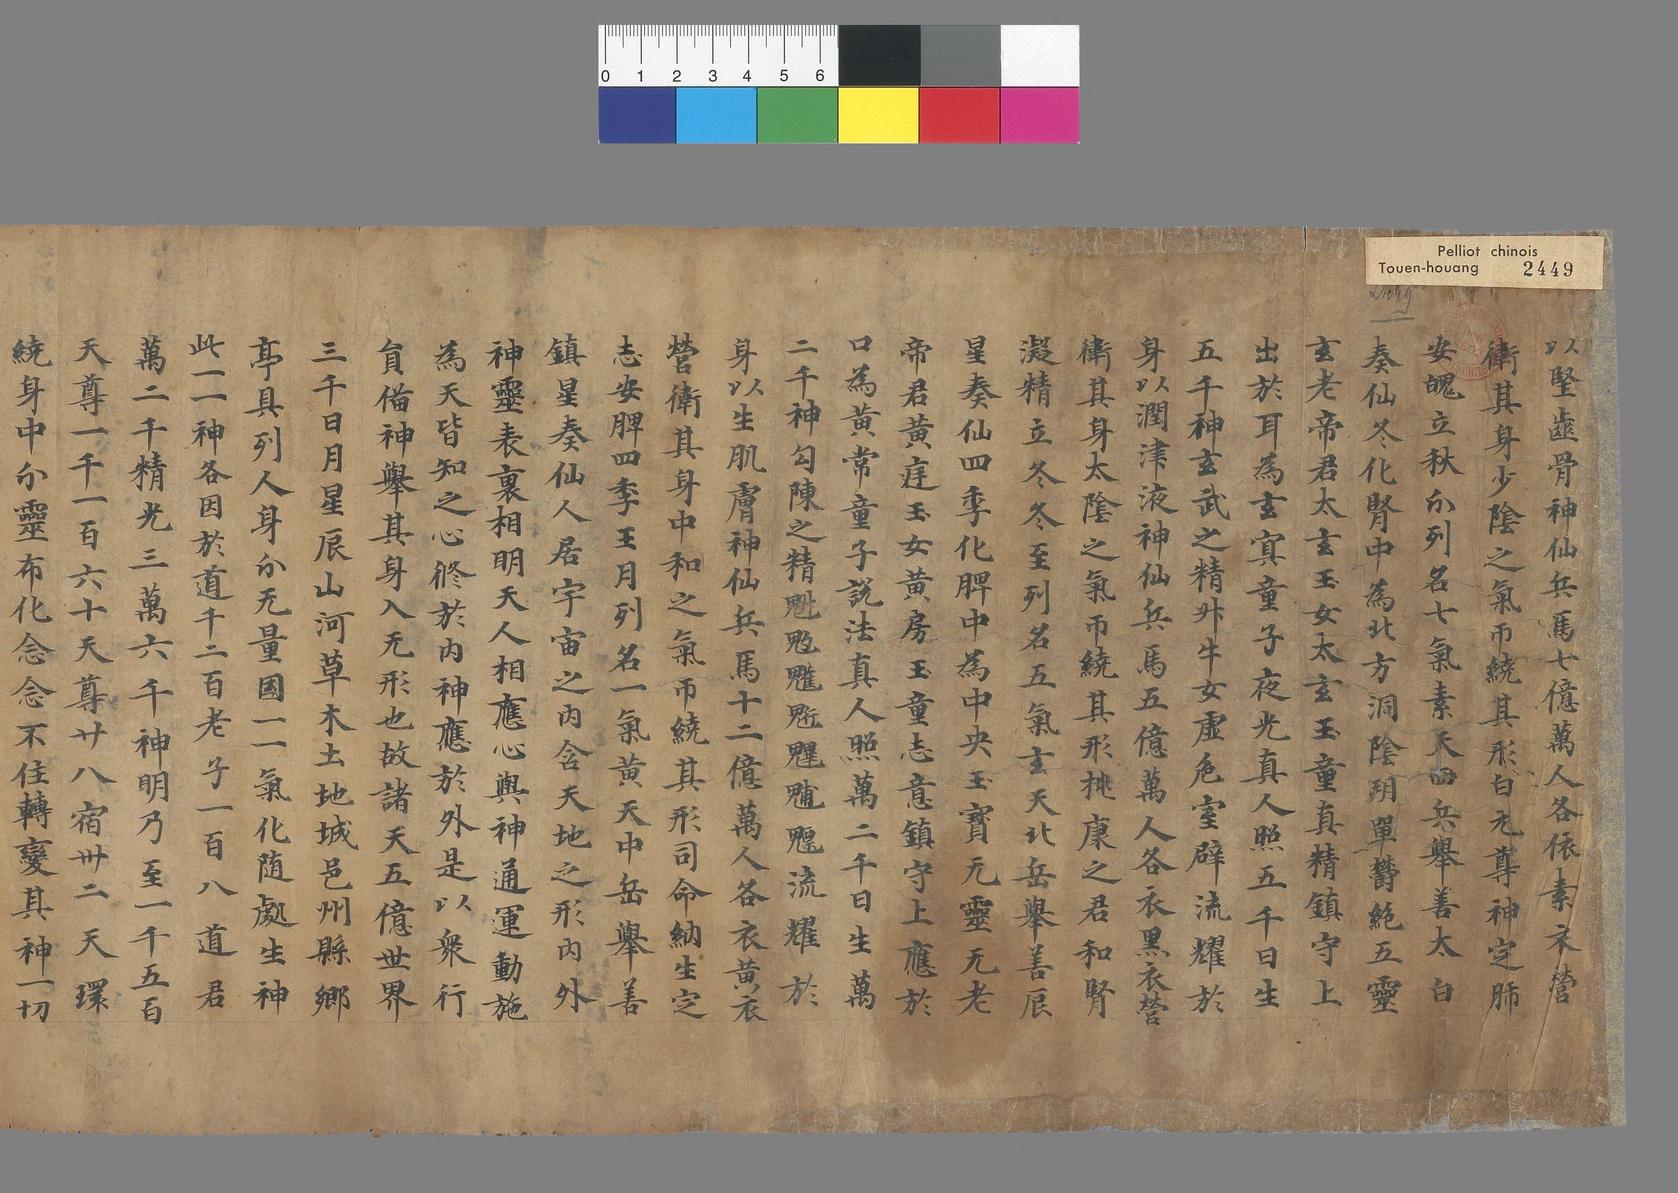 0 1 2 3 4 5 6
Pelliot chinois
Touen-houang 2449
2449
以堅齒骨神仙兵馬七億萬人各依素衣營
衛其身少陰之氣帀繞其形白元尊神定肺
安魄立秋分列名七氣素天西兵舉善太白
奏仙冬化腎中為北方洞陰玥單欝絕五靈
玄老帝君太玄玉女太玄玉童真精鎮守上
出於耳為玄㝠童子夜光真人照五千日生
五千神玄武之精斗牛女虛危室辟流耀於
身以潤津液神仙兵馬五億萬人各衣黑衣營
衛其身太陰之氣帀繞其形桃康之君和腎
凝精立冬冬至列名五氣玄天北岳舉善辰
星奏仙四季化脾中為中央玉寶元靈元老
帝君黃庭玉女黃房玉童志意鎮守上應於
口為黃常童子說法真人照萬二千日生萬
二千神勾陳之精流耀於
身以生肌膚神仙兵馬十二億萬人各衣黃衣
營衛其身中和之氣帀繞其形司命納生定
志安脾四季王月列名一氣黃天中岳舉善
鎮星奏仙人居宇宙之内含天地之形内外
神靈表裏相明天人相應心與神通運動施
為天皆知之心修於内神應於外是以衆行
負俻神舉其身入无形也故諸天五億世界
三千日月星辰山河草木土地城邑州縣鄉
亭具列人身分无量國一一氣化随處生神
此一一神各因於道千二百老子一百八道君
萬二千精光三萬六千神明乃至一千五百
天尊一千一百六十天尊廿八宿卅二天環
繞身中分靈布化念念不住轉變其神一切